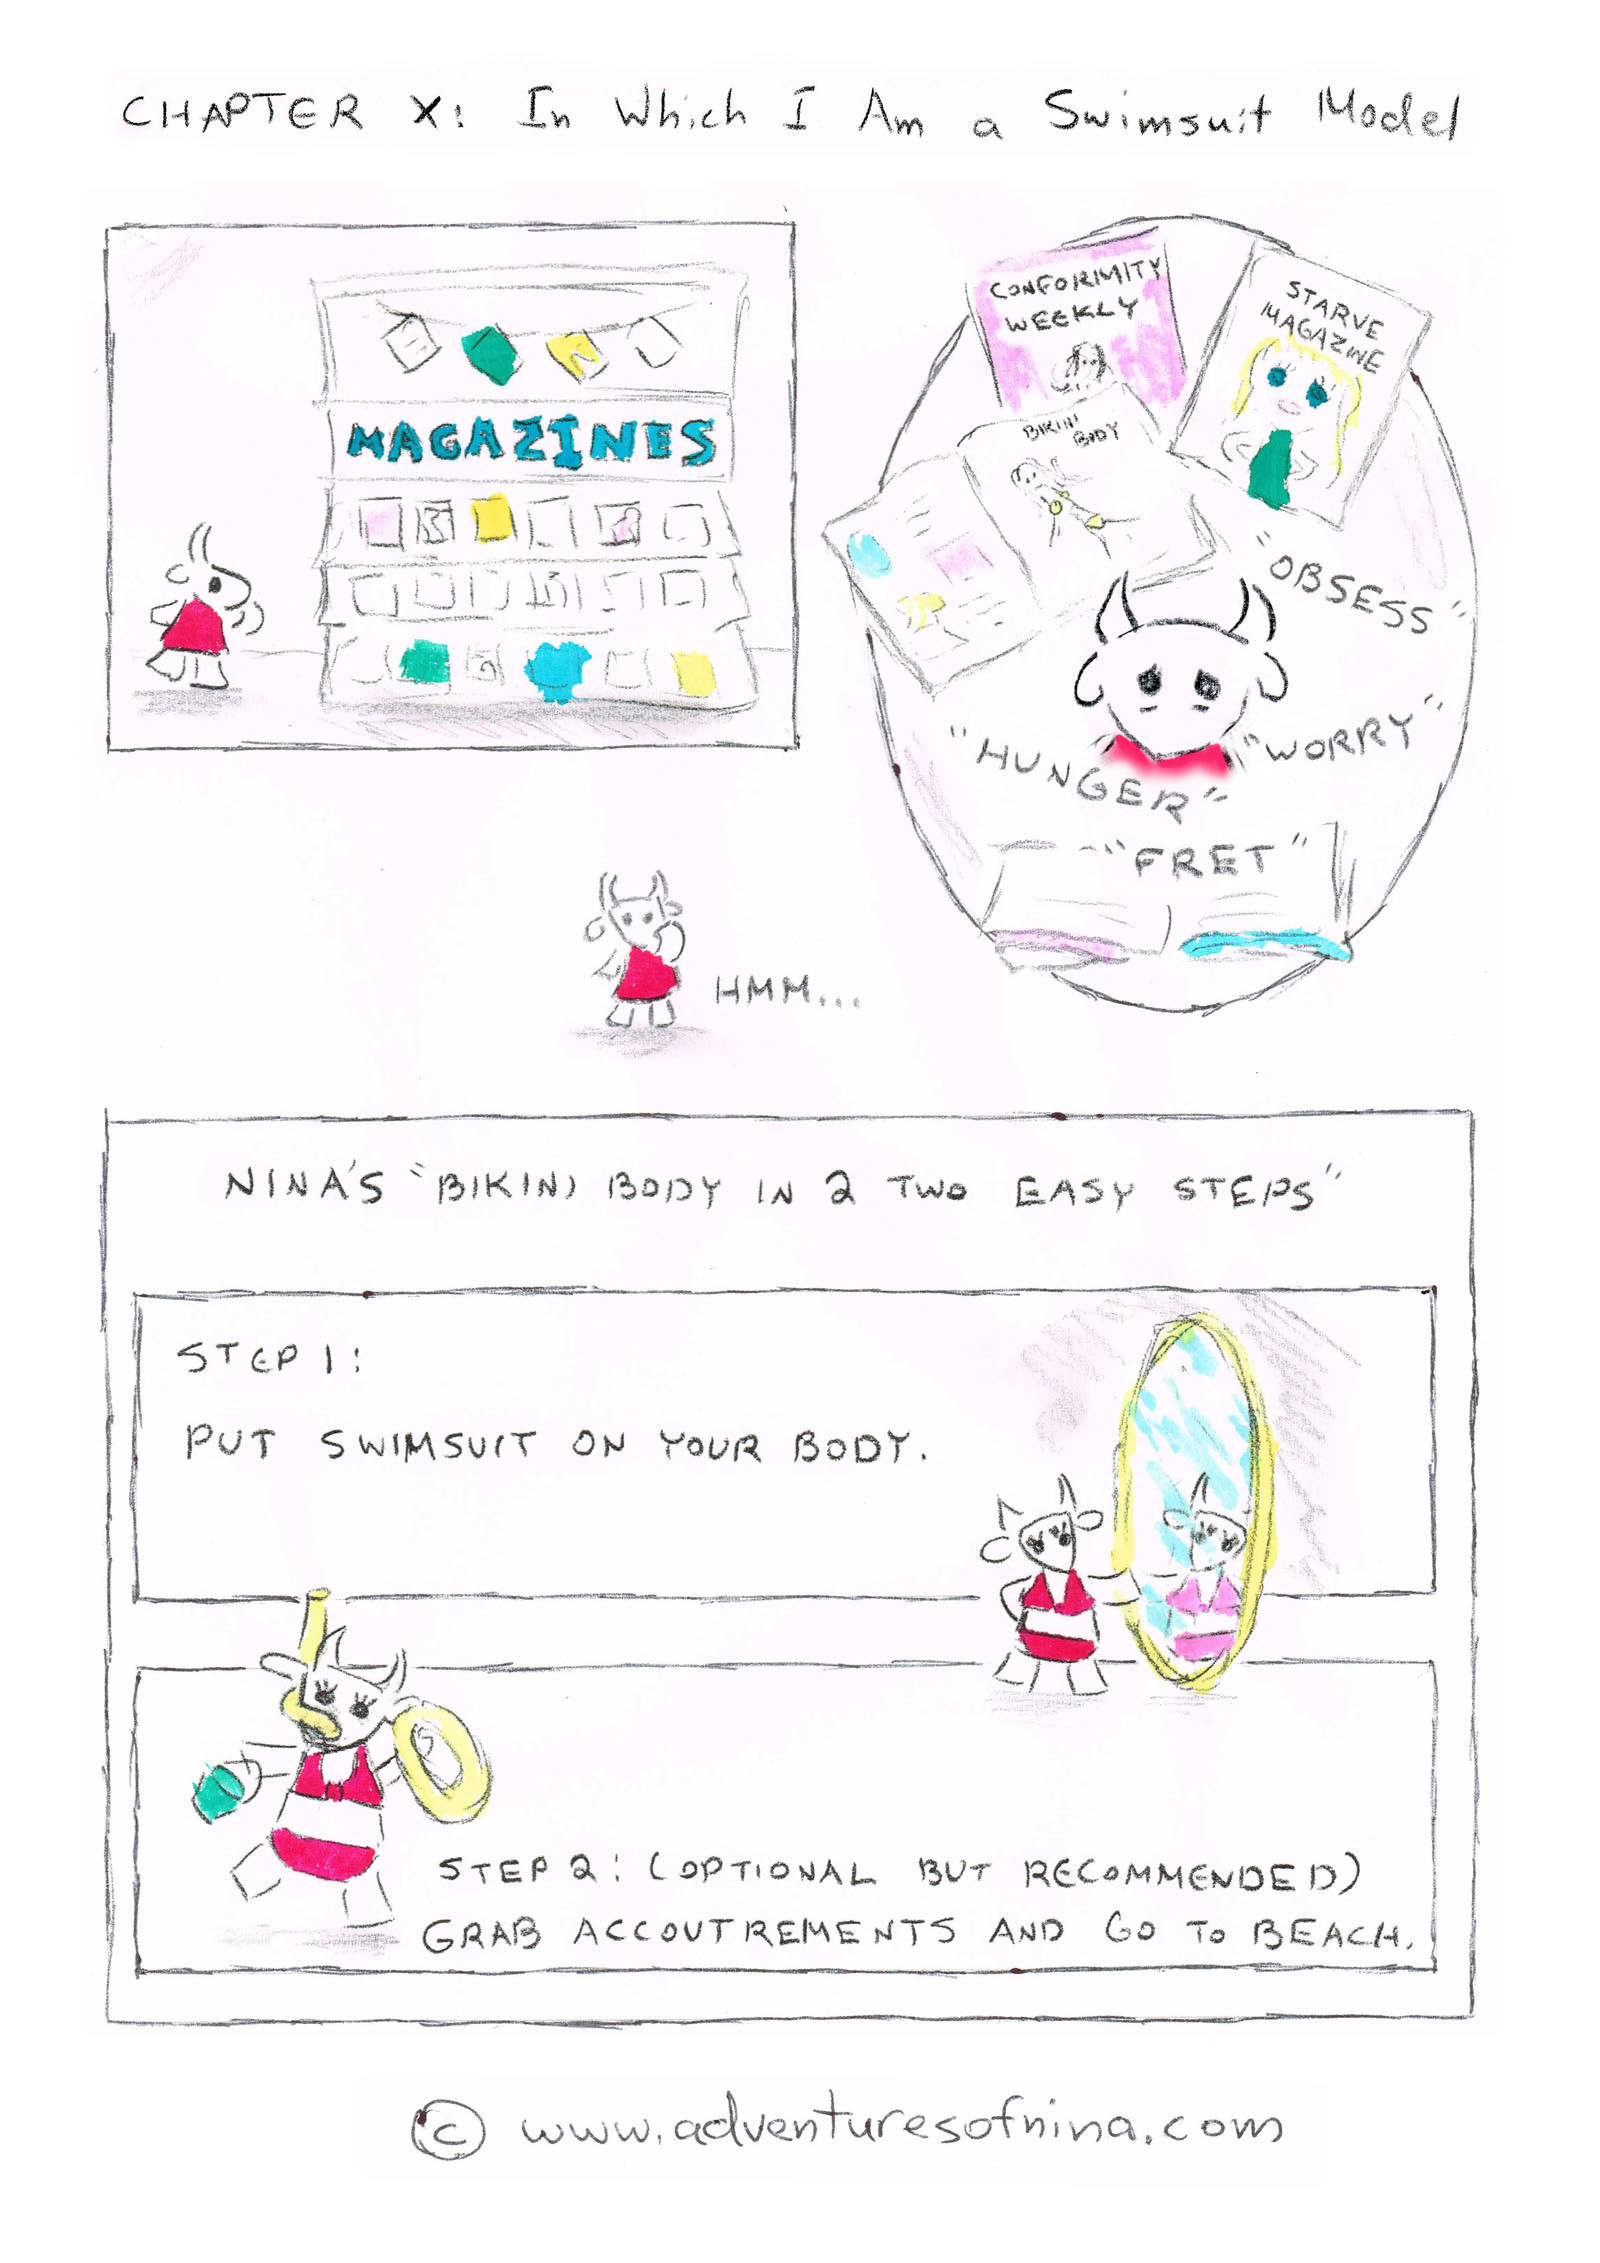 CHAPTER X: In Which I Am a Swimsuit Model
MAGAZINES
CONFORIMITY
WEEKLY
STARVE
MAGAZINE
BIKINI
BODY
"OBSESS"
"HUNGER"
"WORRY"
"FRET"
HMM...
NINA'S "BIKINI BODY IN 2 TWO EASY STEPS"
STEP 1:
PUT SWIMSUIT ON YOUR BODY.
STEP 2: (OPTIONAL BUT RECOMMENDED)
GRAB ACCOUTREMENTS AND GO TO BEACH.
© www.adventuresofnina.com